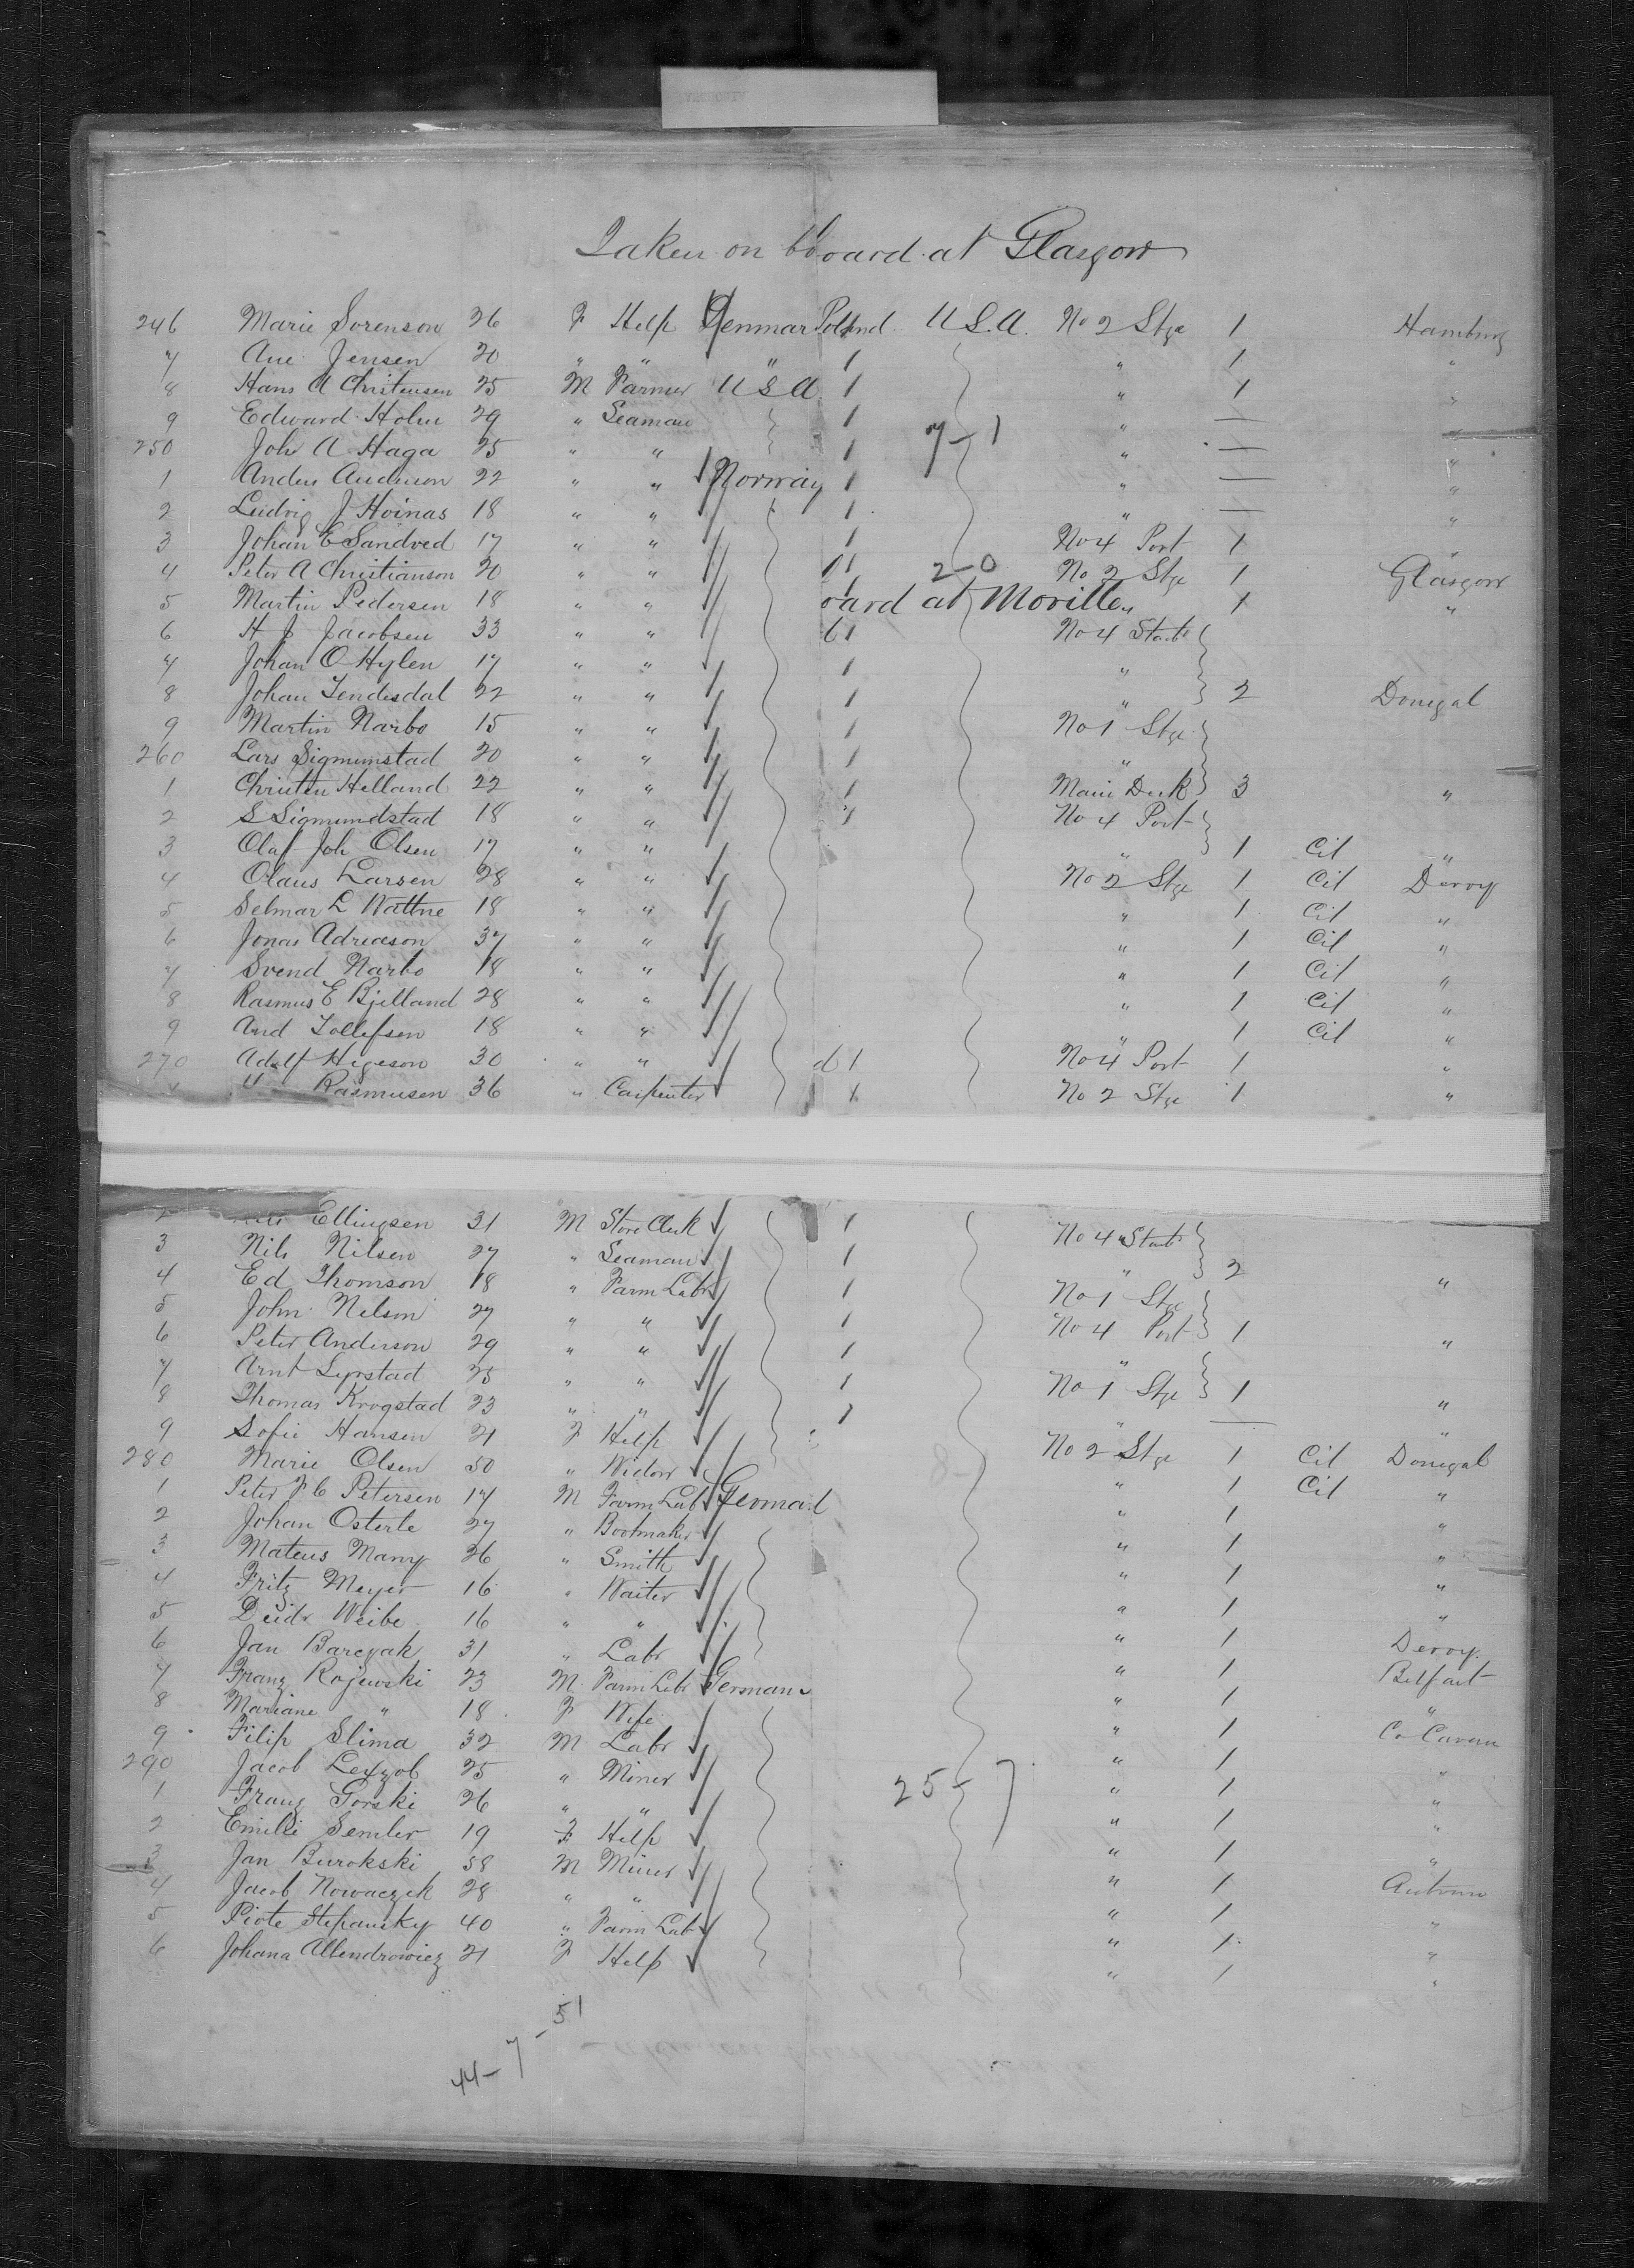 Taken on board at Glasgow
246 Marie Sorenson 26 F Help Denmar Po nd U.S.A. No 2 Stge 1 Hamburg
7 Ane Jensen 20 " " " 1 " 1 "
8 Hans A Christensen 25 M Farmer U S A 1 " 1 "
9 Edward Holm 29 " Seaman 1 " — "
250 Joh A Haga 25 " " 1 7-1 " — "
1 Anders Anderson 22 " " Norway 1 " — "
2 Ludvig J Hoinas 18 " " 1 " — "
3 Johan E Sandved 17 " " 1 No 4 Port 1 "
4 Peter A Christianson 20 " " 1 2-0 No 2 Stge 1 Glasgow
5 Martin Pedersen 18 " " oard at Moville " 1 "
6 H J Jacobsen 33 " " 1 No 4 Starb
7 Johan O Hylen 17 " " 1 "
8 Johan Tendesdal 22 " " 1 " 2 Donegal
9 Martin Narbo 15 " " 1 No 1 Stge
260 Lars Sigmunstad 20 " " 1 "
1 Christen Helland 22 " " 1 Main Deck 3 "
2 S Sigmundstad 18 " " 1 No 4 Port
3 Olaf Joh Olsen 17 " " " 1 Cit "
4 Olaus Larsen 28 " " No 2 Stge 1 Cit Derry
5 Selmar L Wattne 18 " " " 1 Cit "
6 Jonas Adreason 37 " " " 1 Cit "
7 Svend Narbo 18 " " " 1 Cit "
8 Rasmus E Bjelland 28 " " " 1 Cit "
9 And Tollefsen 18 " " " 1 Cit "
270 Adolf Higeson 30 " " d 1 No 4 Port 1 "
Rasmusen 36 " Carpenter 1 No 2 Stge 1 "
Ellingsen 31 M Store Clerk 1 No 4 Starb
3 Nils Nilsen 27 " Seaman 1 " 2 "
4 Ed Thomson 18 " Farm Labr 1 No 1 Stge
5 John Nelson 27 " " 1 No 4 Port 1 "
6 Peter Anderson 29 " " 1 "
7 Arnt Lyrstad 25 " " 1 No 1 Stge 1 "
8 Thomas Krogstad 23 " " 1 " — "
9 Sofie Hansen 21 F Help No 2 Stge 1 Cit Donegal
280 Marie Olsen 50 " Widow " 1 Cit "
1 Peter F C Petersen 17 M Farm Lab German d " 1 "
2 Johan Osterle 27 " Bootmaker " 1 "
3 Mateus Many 26 " Smith " 1 "
4 Fritz Meyer 16 " Waiter " 1 "
5 Weibe 16 " " " 1 Derry
6 Jan Barczak 31 " Labr " 1 Belfast
7 Franz Rajewski 23 M Farm Labr German " 1 "
8 Mariane " 18 F Wife " 1 Co Cavan
9 Filip Slima 32 M Labr " 1 "
290 Jacob 25 " Miner 25-7 " 1 "
1 Franz Gorski 26 " " " 1 "
2 Emilie Semler 19 F Help " 1 "
3 Jan Burokski 38 M Miner " 1 Antrim
4 Jacob Nowaczek 28 " " " 1 "
5 Piote Stepansky 40 " Farm Labr " 1 "
6 Johana Allendrowiez 21 F Help " 1 "
44-7-51